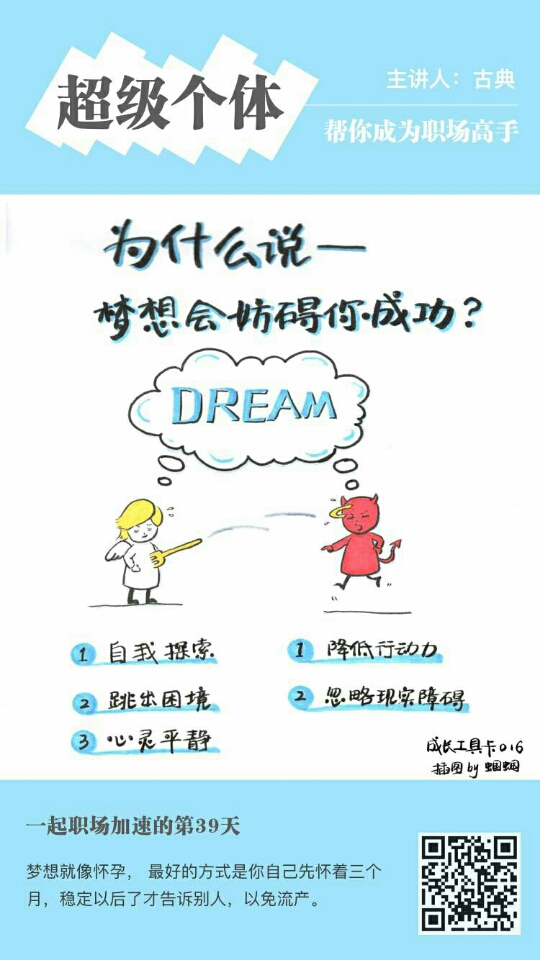 超级个体
主讲人：古典
帮你成为职场高手
为什么说—
梦想会妨碍你成功？
DREAM
1 自我探索
2 跳出困境
3 心灵平静
1 降低行动力
2 忽略现实障碍
成长工具卡016
插图by 蝈蝈
一起职场加速的第39天
梦想就像怀孕， 最好的方式是你自己先怀着三个
月，稳定以后了才告诉别人，以免流产。